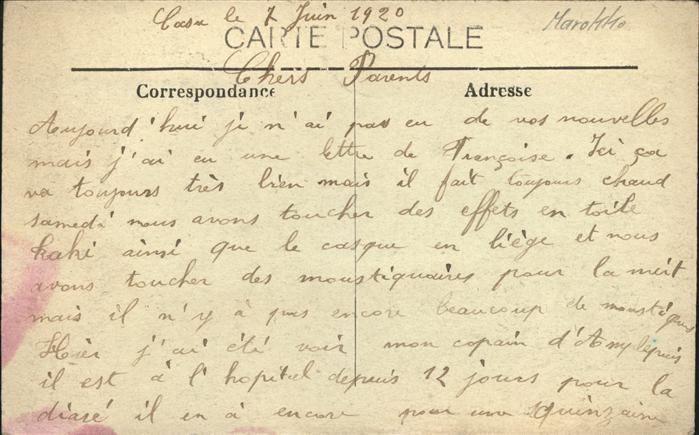 Casa le 7 Juin 1920
Marokko
CARTE POSTALE
Chers Parents
Correspondance
Adresse
Aujourd'hui je n'ai pas eu de vos nouvelles
mais j'ai eu une lettre de Françoise. Ici ça
va toujours très bien mais il fait toujours chaud
samedi nous avons toucher des effets en toile
kaki ainsi que le casque en liège et nous
avons toucher des moustiquaires pour la nuit
mais il n'y à pas encore beaucoup de moustiques
Hier j'ai été voir mon copain d'Amplepuis
il est à l'hopital depuis 12 jours pour la
diaré il en à encore pour une quinzaine